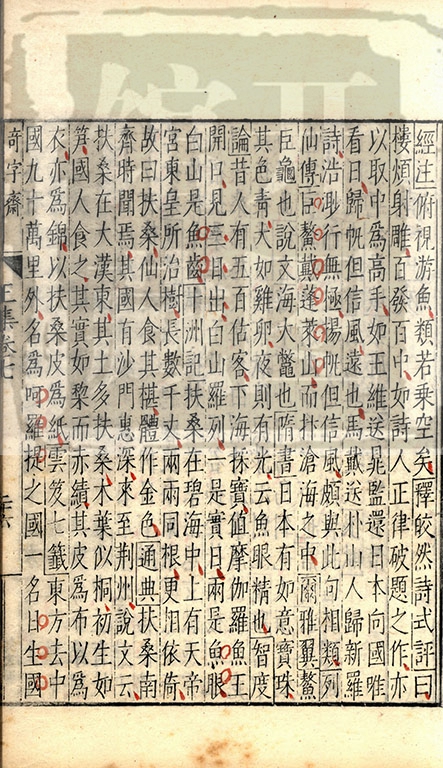 經注俯視游魚類若乘空矣釋皎然詩式評曰
樓煩射雕百發百中如詩人正律破題之作亦
以取中為高手如王維送晁監還日本向國唯
看日歸帆但信風遠也馬戴送朴山人歸新羅
詩浩眇行無極揚帆但信風頗與此句相類列
仙傳巨鰲戴蓬萊山而抃滄海之中爾雅翼鰲
巨龜也說文海大鼈也隋書日本有如意寶珠
其色青大如雞卵夜則有光云魚眼精也智度
論昔人有五百估客下海採寶值摩伽羅魚王
開口見三日出白山羅列一是實日兩是魚眼
白山是魚齒十洲記扶桑在碧海中上有天帝
宮東皇所治樹長數千丈兩兩同根更相依倚
故曰扶桑仙人食其椹體作金色通典扶桑南
齊時聞焉其國有沙門惠深來至荆州說文云
扶桑在大漢東其土多扶桑木葉似桐初生如
筍國人食之其實如棃而赤績其皮為布以為
衣亦為錦以扶桑皮為紙雲笈七籤東方去中
國九十萬里外名為呵羅提之國一名日生國
奇字齋 王集卷七